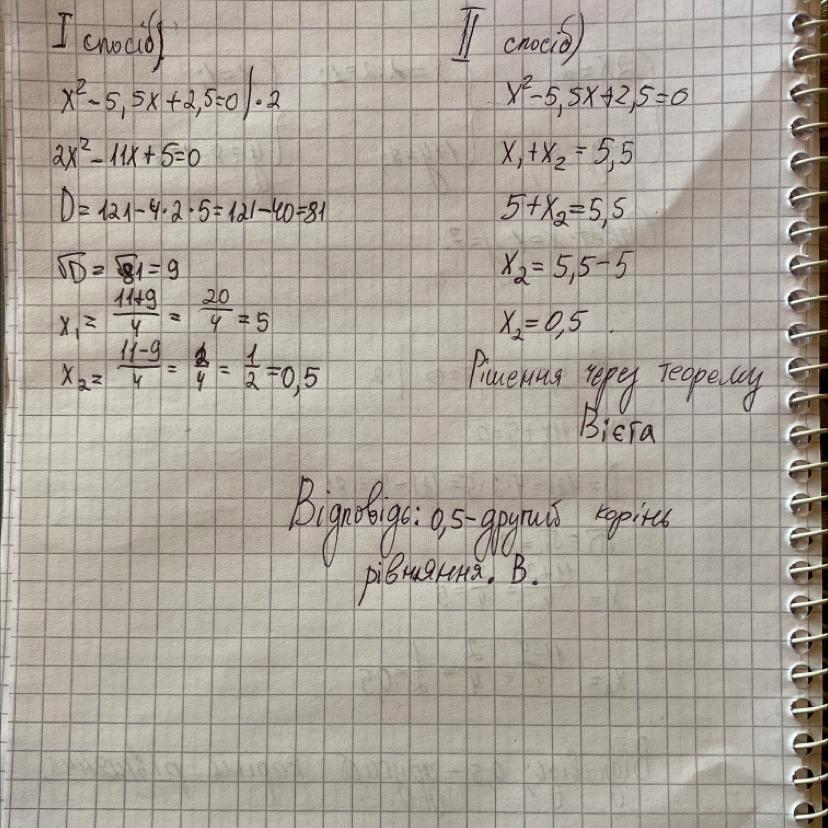 I спосіб)
x² - 5,5x + 2,5 = 0 | · 2
2x² - 11x + 5 = 0
D = 121 - 4 · 2 · 5 = 121 - 40 = 81
√D = √81 = 9
x₁ = (11+9)/4 = 20/4 = 5
x₂ = (11-9)/4 = 2/4 = 1/2 = 0,5
II спосіб)
x² - 5,5x + 2,5 = 0
x₁ + x₂ = 5,5
5 + x₂ = 5,5
x₂ = 5,5 - 5
x₂ = 0,5 .
Рішення через теорему
Вієта
Відповідь: 0,5 - другий корінь
рівняння. В.